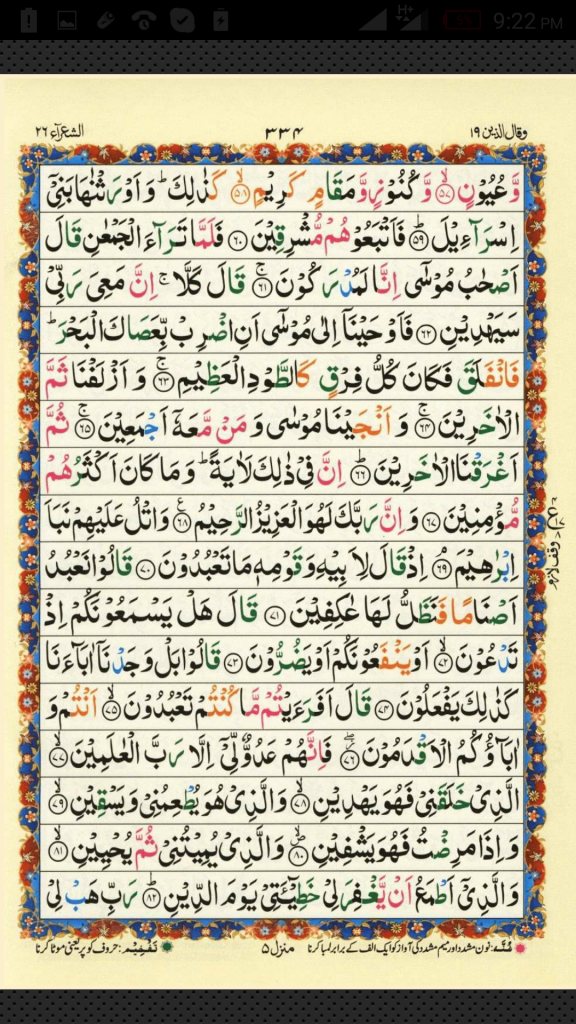 9:22 PM
وقال الذين ١٩
٣٣٤
الشعرآء ٢٦
وَّعُيُوْنٍ ۙ﴿٥٧﴾ وَّكُنُوْزٍ وَّمَقَامٍ كَرِيْمٍ ۙ﴿٥٨﴾ كَذٰلِكَ ؕ وَاَوْرَثْنٰهَا بَنِيْۤ
اِسْرَآءِيْلَ ؕ﴿٥٩﴾ فَاَتْبَعُوْهُمْ مُّشْرِقِيْنَ ﴿٦٠﴾ فَلَمَّا تَرَآءَ الْجَمْعٰنِ قَالَ
اَصْحٰبُ مُوْسٰۤى اِنَّا لَمُدْرَكُوْنَ ۚ﴿٦١﴾ قَالَ كَلَّا ۚ اِنَّ مَعِىَ رَبِّىْ
سَيَهْدِيْنِ ﴿٦٢﴾ فَاَوْحَيْنَاۤ اِلٰى مُوْسٰۤى اَنِ اضْرِبْ بِّعَصَاكَ الْبَحْرَ ؕ
فَانْفَلَقَ فَكَانَ كُلُّ فِرْقٍ كَالطَّوْدِ الْعَظِيْمِ ۚ﴿٦٣﴾ وَاَزْلَفْنَا ثَمَّ
الْاٰخَرِيْنَ ۚ﴿٦٤﴾ وَاَنْجَيْنَا مُوْسٰى وَمَنْ مَّعَهٗۤ اَجْمَعِيْنَ ۚ﴿٦٥﴾ ثُمَّ
اَغْرَقْنَا الْاٰخَرِيْنَ ؕ﴿٦٦﴾ اِنَّ فِىْ ذٰلِكَ لَاٰيَةً ؕ وَمَا كَانَ اَكْثَرُهُمْ
مُّؤْمِنِيْنَ ﴿٦٧﴾ وَاِنَّ رَبَّكَ لَهُوَ الْعَزِيْزُ الرَّحِيْمُ ۧ﴿٦٨﴾ وَاتْلُ عَلَيْهِمْ نَبَاَ
اِبْرٰهِيْمَ ۘ﴿٦٩﴾ اِذْ قَالَ لِاَبِيْهِ وَقَوْمِهٖ مَا تَعْبُدُوْنَ ﴿٧٠﴾ قَالُوْا نَعْبُدُ
اَصْنَامًا فَنَظَلُّ لَهَا عٰكِفِيْنَ ﴿٧١﴾ قَالَ هَلْ يَسْمَعُوْنَكُمْ اِذْ
تَدْعُوْنَ ۙ﴿٧٢﴾ اَوْ يَنْفَعُوْنَكُمْ اَوْ يَضُرُّوْنَ ﴿٧٣﴾ قَالُوْا بَلْ وَجَدْنَاۤ اٰبَآءَنَا
كَذٰلِكَ يَفْعَلُوْنَ ﴿٧٤﴾ قَالَ اَفَرَءَيْتُمْ مَّا كُنْتُمْ تَعْبُدُوْنَ ۙ﴿٧٥﴾ اَنْتُمْ وَ
اٰبَآؤُكُمُ الْاَقْدَمُوْنَ ۖ﴿٧٦﴾ فَاِنَّهُمْ عَدُوٌّ لِّىْۤ اِلَّا رَبَّ الْعٰلَمِيْنَ ۙ﴿٧٧﴾
الَّذِىْ خَلَقَنِىْ فَهُوَ يَهْدِيْنِ ۙ﴿٧٨﴾ وَالَّذِىْ هُوَ يُطْعِمُنِىْ وَيَسْقِيْنِ ۙ﴿٧٩﴾
وَاِذَا مَرِضْتُ فَهُوَ يَشْفِيْنِ ۙ﴿٨٠﴾ وَالَّذِىْ يُمِيْتُنِىْ ثُمَّ يُحْيِيْنِ ۙ﴿٨١﴾
وَالَّذِىْۤ اَطْمَعُ اَنْ يَّغْفِرَ لِىْ خَطِيْٓئَتِىْ يَوْمَ الدِّيْنِ ؕ﴿٨٢﴾ رَبِّ هَبْ لِىْ
وقف لازم
غُنَّه: نون مشدد اور میم مشدد کی آواز کو ایک الف کے برابر لمبا کرنا
منزل ٥
تَفْخِيْم: حروف کو پُر یعنی موٹا کرنا